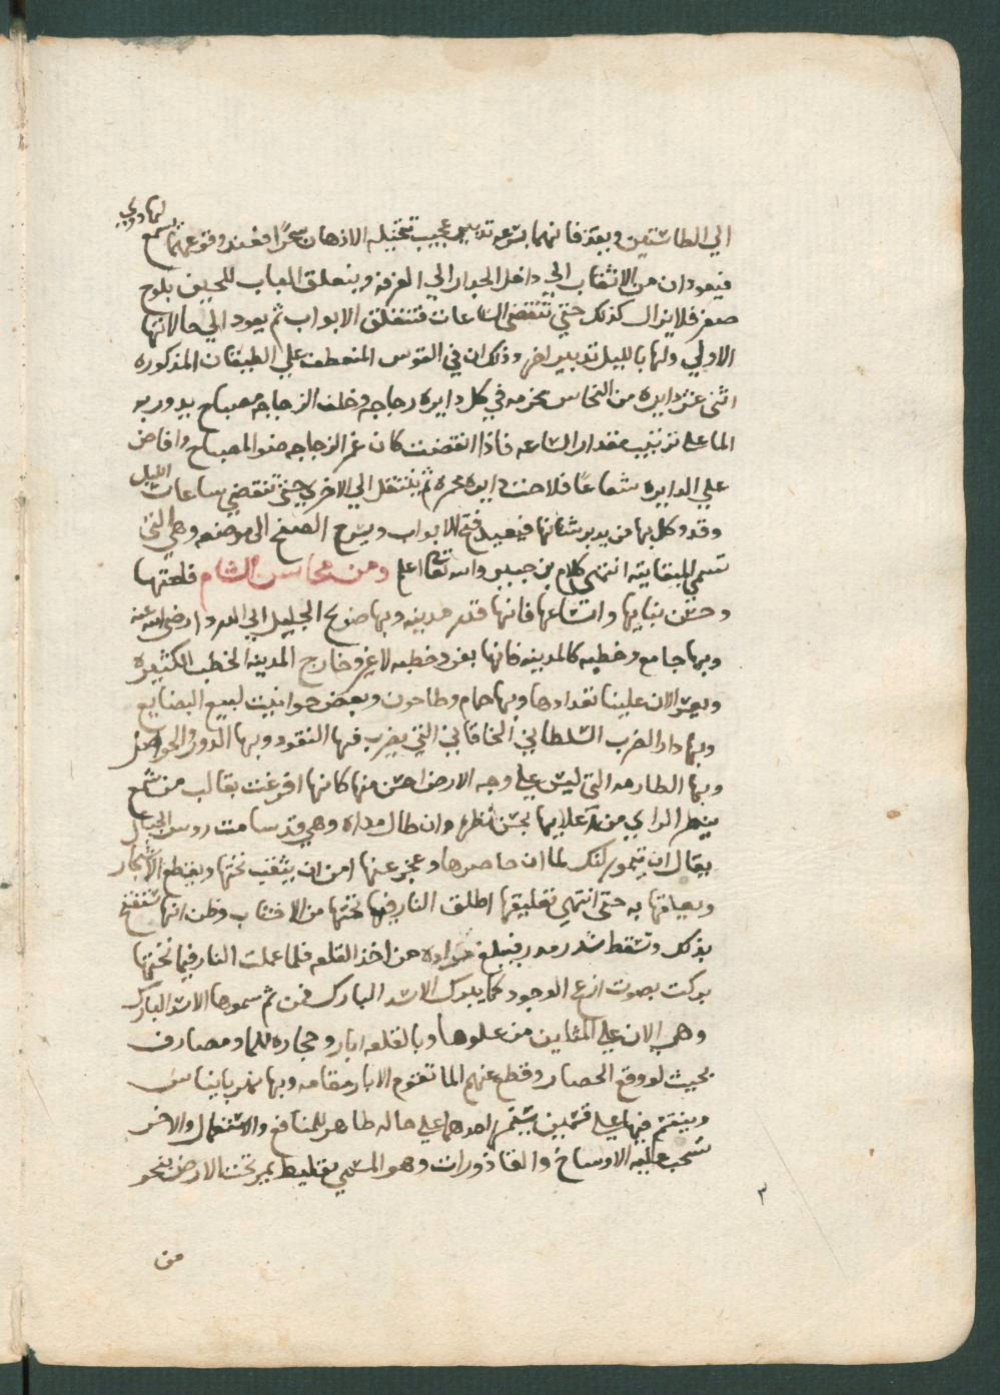 لهما دوي
الي الطاستين وبعد فانهما بسرعه تدبير عجيب تتخيله الاذهان سحرًا فعند وقوعهما يسمع
فيعودان من الاثقاب الي داخل الجدار الي الغرفه وينغلق الباب للحين بلوح
صفر فلا يزال كذلك حتي تنقضي الساعات فتنغلق الابواب ثم يعود الي حالاتها
الاولي ولها بالليل تدبير اخر وذلك ان في القوس المنعطف علي الطيقان المذكوره
اثني عشر دايره من النحاس مخرمه في كل دايره زجاجه وخلف الزجاجه مصباح يدور به
الما علي ترتيب مقدار الساعه فاذا انقضت كان عم الزجاجه ضو المصباح وافاض
علي الدايره شعاعًا فلاحت دايره محمره ثم ينتقل الي الاخري حتي تنقضي ساعات الليل
وقد وكل بها من يدبر شانها فيعيد فتح الابواب ويسرح الصنج الي موضعه وهي التي
تسمي الميقاتيه انتهي كلام بن جبير والله تعالي اعلم ومن محاسن الشام قلعتها
وحسن بنايها واتساعها فانها قدر مدينه وبها ضريح الجليل ابي الدردا رضي الله عنه
وبها جامع وخطبه كالمدينه فانها بفرد خطبه لا غير وخارج المدينه الخطب الكثيره
ويعسر الان علينا تعدادها وبها حمام وطاحون وبعض حوانيت لبيع البضايع
وبها دار الضرب السلطاني الخاقاني التي يضرب فيها النقود وبها الدور والحواصل
وبها الطارمه التي ليس علي وجه الارض احسن منها كانها افرغت بقالب من شمع
ينظر الراي من اعلاها بحسن نظر وان طال مداه وهي قد سامت روس الجبال
يقال ان تيمورلنك لما ان حاصرها وعجز عنها امر ان يثقب تحتها ويقطع الاشجار
ويعلقها به حتي انتهي تعليقها اطلق النار فيما تحتها من الاخشاب وظن انها تنفتح
بذلك وتسقط شدر مدر فيبلغ مراده من اخذ القلعه فلما عملت النار فيما تحتها
بركت بصوت ازعج الوجود كما يبرك الاسد البارك فمن ثم سموها الاسد البارك
وهي الان علي الثلثين من علوها وبالقلعه ابار ومجاره للما ومصارف
بحيث لو وقع الحصار وقطع عنهم الما تقوم الابار مقامه وبها نهر باناس
وينقسم فيها علي قسمين يستمر احدهما علي حاله طاهر للمنافع والاستعمال والاخر
تسحب عليه الاوساخ والقاذورات وهو المسمي بقليط يمر تحت الارض نحو
٣
من